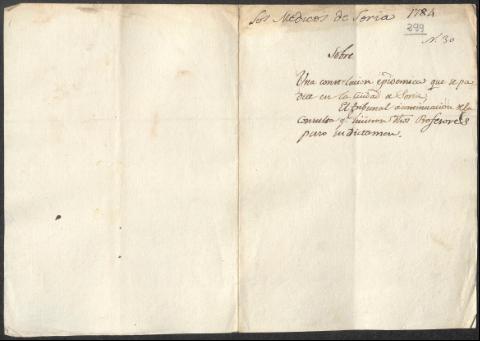 Los Medicos de Soria 1784
299
N. 30
Sobre
Una constelacion epidemica que se pa
dece en la Ciudad de Soria.
El tribunal a continuación de la
Consulta q hicieron dhos Profesores
puso su dictamen.